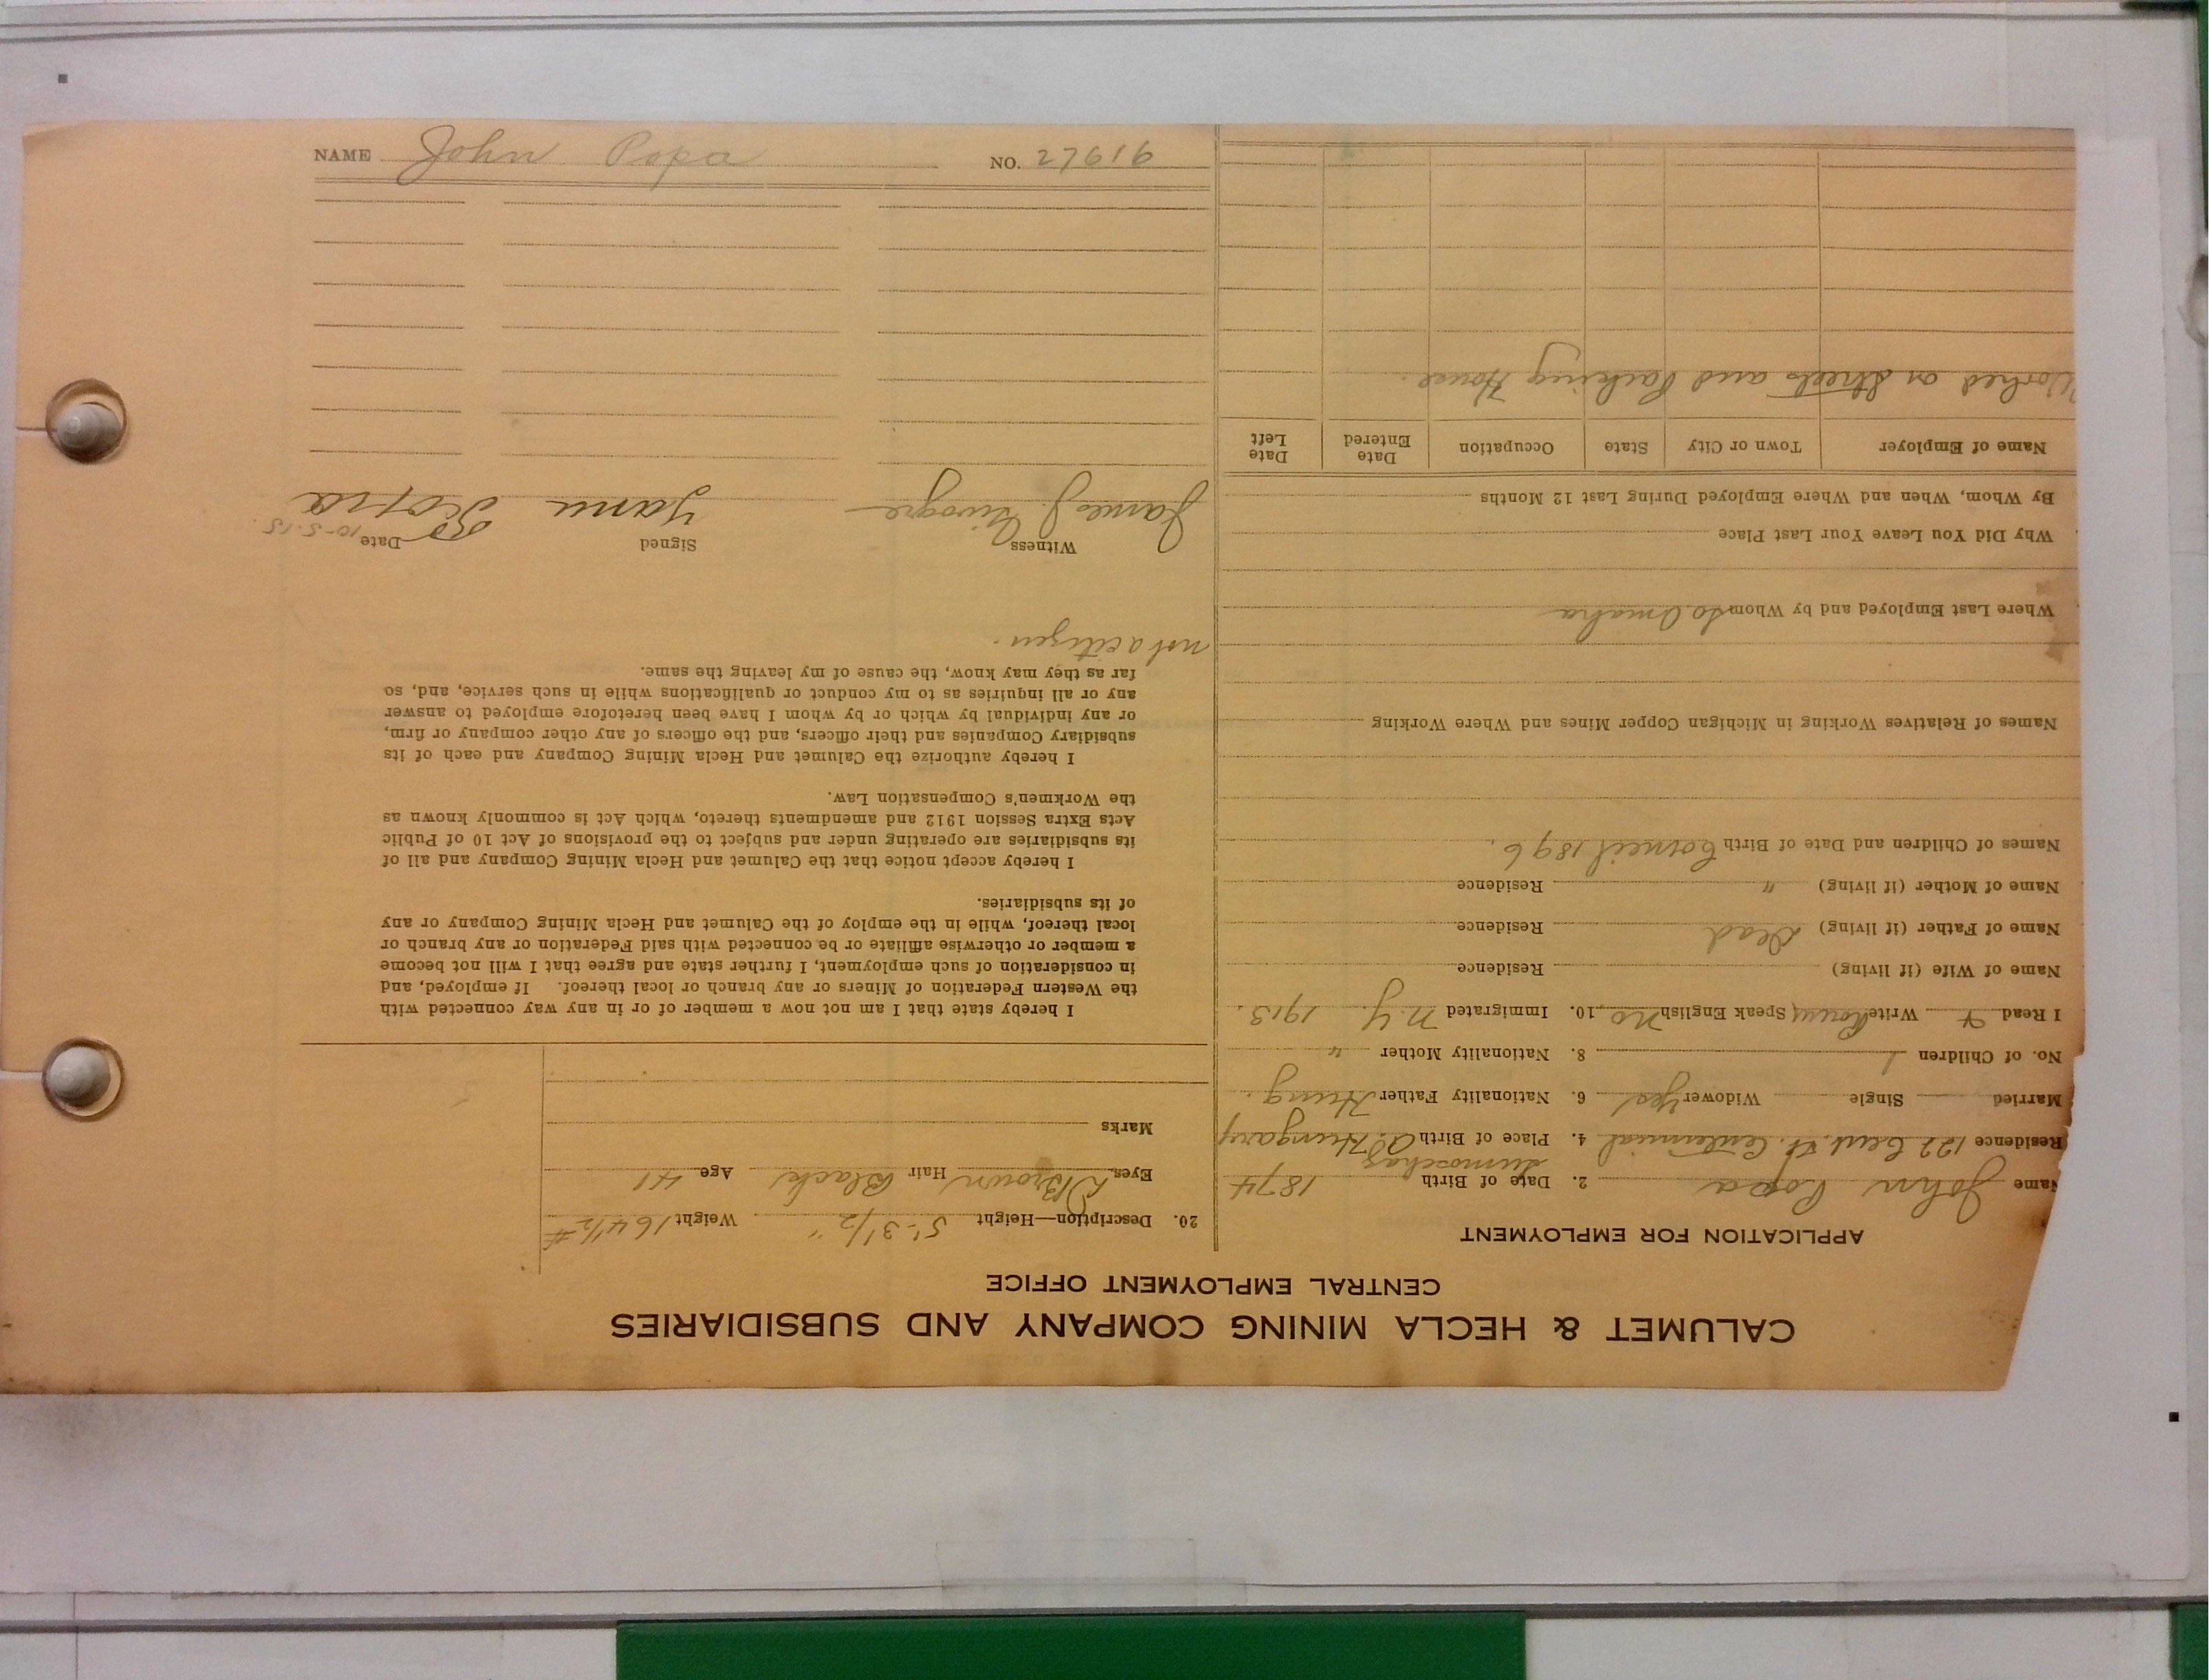 NAME John Popa NO. 27616
CALUMET & HECLA MINING COMPANY AND SUBSIDIARIES
CENTRAL EMPLOYMENT OFFICE
APPLICATION FOR EMPLOYMENT
Name John Popa 2. Date of Birth 1874
Residence 122 Cent. St. Centennial 4. Place of Birth Hungary
Married Single Widower Yes 6. Nationality Father Hung.
No. of Children 1 8. Nationality Mother "
I Read Write Speak English No 10. Immigrated N.Y. 1913.
Name of Wife (if living) Residence
Name of Father (if living) Dead Residence
Name of Mother (if living) " Residence
Names of Children and Date of Birth Corneil 1896.
Names of Relatives Working in Michigan Copper Mines and Where Working
Where Last Employed and by Whom So Omaha
Why Did You Leave Your Last Place
By Whom, When and Where Employed During Last 12 Months
Name of Employer Town or City State Occupation Date Entered Date Left
Worked on Streets and Packing House.
20. Description—Height 5'-3 1/2" Weight 164 1/2 #
Eyes Brown Hair Black Age 41
Marks
I hereby state that I am not now a member of or in any way connected with
the Western Federation of Miners or any branch or local thereof. If employed, and
in consideration of such employment, I further state and agree that I will not become
a member or otherwise affiliate or be connected with said Federation or any branch or
local thereof, while in the employ of the Calumet and Hecla Mining Company or any
of its subsidiaries.
I hereby accept notice that the Calumet and Hecla Mining Company and all of
its subsidiaries are operating under and subject to the provisions of Act 10 of Public
Acts Extra Session 1912 and amendments thereto, which Act is commonly known as
the Workmen's Compensation Law.
I hereby authorize the Calumet and Hecla Mining Company and each of its
subsidiary Companies and their officers, and the officers of any other company or firm,
or any individual by which or by whom I have been heretofore employed to answer
any or all inquiries as to my conduct or qualifications while in such service, and, so
far as they may know, the cause of my leaving the same.
not a citizen.
Witness Signed Date 10-5-15.
James J.